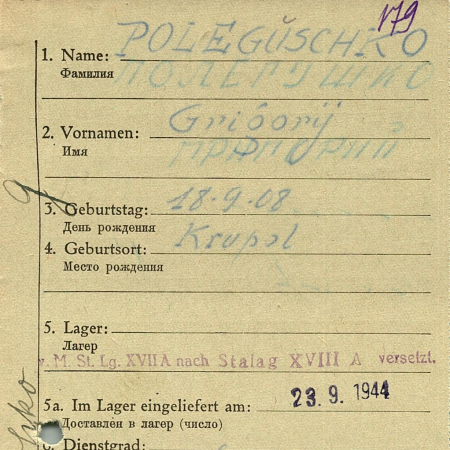 179
1. Name: POLEGUSCHKO
Фамилия
2. Vornamen: Grigorij
Имя
3. Geburtstag: 18.9.08
День рождения
4. Geburtsort: Krupol
Место рождения
5. Lager:
Лагер
v. M. St. Lg. XVII A nach Stalag XVIII A versetzt.
5a. Im Lager eingeliefert am: 23. 9. 1944
Доставлен в лагер (число)
6. Dienstgrad: